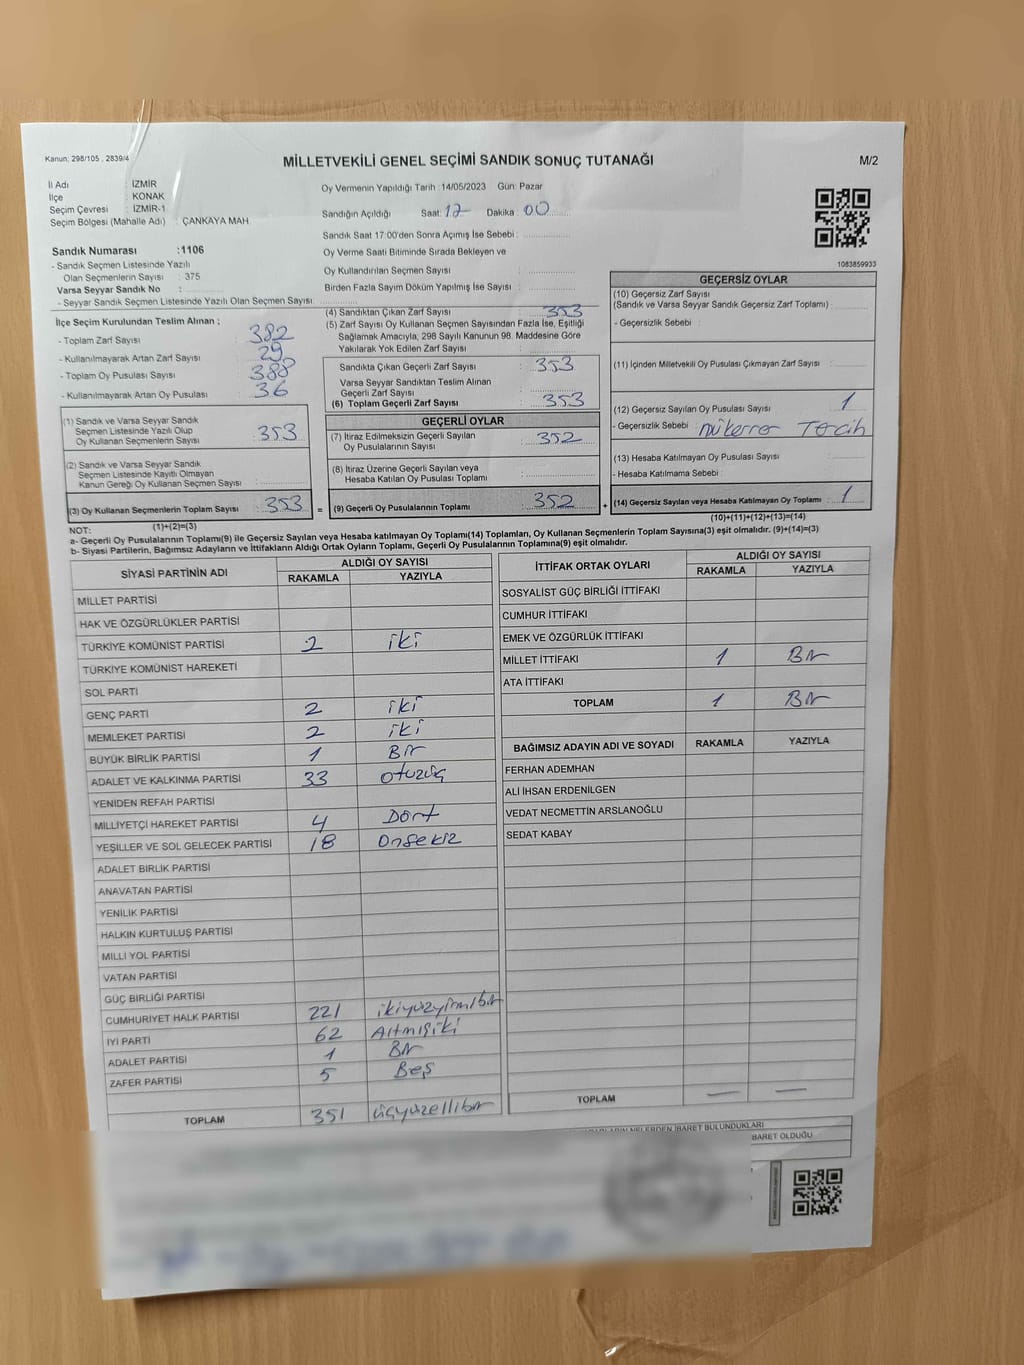 Kanun; 298/105 , 2839/4
MİLLETVEKİLİ GENEL SEÇİMİ SANDIK SONUÇ TUTANAĞI
M/2
İl Adı : İZMİR
İlçe : KONAK
Seçim Çevresi : İZMİR-1
Seçim Bölgesi (Mahalle Adı) : ÇANKAYA MAH.
Oy Vermenin Yapıldığı Tarih : 14/05/2023 Gün: Pazar
Sandığın Açıldığı Saat: 17 Dakika : 00
Sandık Saat 17:00'den Sonra Açımış İse Sebebi :
Oy Verme Saati Bitiminde Sırada Bekleyen ve
Oy Kullandırılan Seçmen Sayısı :
Birden Fazla Sayım Döküm Yapılmış İse Sayısı :
1083859933
Sandık Numarası :1106
- Sandık Seçmen Listesinde Yazılı
Olan Seçmenlerin Sayısı : 375
Varsa Seyyar Sandık No :
- Seyyar Sandık Seçmen Listesinde Yazılı Olan Seçmen Sayısı:
İlçe Seçim Kurulundan Teslim Alınan ;
- Toplam Zarf Sayısı : 382
- Kullanılmayarak Artan Zarf Sayısı : 29
- Toplam Oy Pusulası Sayısı : 388
- Kullanılmayarak Artan Oy Pusulası : 36
(1) Sandık ve Varsa Seyyar Sandık
Seçmen Listesinde Yazılı Olup
Oy Kullanan Seçmenlerin Sayısı : 353
(2) Sandık ve Varsa Seyyar Sandık
Seçmen Listesinde Kayıtlı Olmayan
Kanun Gereği Oy Kullanan Seçmen Sayısı :
(3) Oy Kullanan Seçmenlerin Toplam Sayısı : 353
(1)+(2)=(3)
(4) Sandıktan Çıkan Zarf Sayısı : 353
(5) Zarf Sayısı Oy Kullanan Seçmen Sayısından Fazla İse, Eşitliği
Sağlamak Amacıyla, 298 Sayılı Kanunun 98. Maddesine Göre
Yakılarak Yok Edilen Zarf Sayısı :
Sandıkta Çıkan Geçerli Zarf Sayısı : 353
Varsa Seyyar Sandıktan Teslim Alınan
Geçerli Zarf Sayısı :
(6) Toplam Geçerli Zarf Sayısı : 353
GEÇERLİ OYLAR
(7) İtiraz Edilmeksizin Geçerli Sayılan
Oy Pusulasının Sayısı : 352
(8) İtiraz Üzerine Geçerli Sayılan veya
Hesaba Katılan Oy Pusulası Toplamı :
= (9) Geçerli Oy Pusulalarının Toplamı : 352 +
GEÇERSİZ OYLAR
(10) Geçersiz Zarf Sayısı
(Sandık ve Varsa Seyyar Sandık Geçersiz Zarf Toplamı) :
- Geçersizlik Sebebi :
(11) İçinden Milletvekili Oy Pusulası Çıkmayan Zarf Sayısı :
(12) Geçersiz Sayılan Oy Pusulası Sayısı : 1
- Geçersizlik Sebebi : mükerrer Tercih
(13) Hesaba Katılmayan Oy Pusulası Sayısı :
- Hesaba Katılmama Sebebi :
(14) Geçersiz Sayılan veya Hesaba Katılmayan Oy Toplamı : 1
(10)+(11)+(12)+(13)=(14)
NOT:
a- Geçerli Oy Pusulalarının Toplamı(9) ile Geçersiz Sayılan veya Hesaba katılmayan Oy Toplamı(14) Toplamları, Oy Kullanan Seçmenlerin Toplam Sayısına(3) eşit olmalıdır. (9)+(14)=(3)
b- Siyasi Partilerin, Bağımsız Adayların ve İttifakların Aldığı Ortak Oyların Toplamı, Geçerli Oy Pusulalarının Toplamına(9) eşit olmalıdır.
SİYASİ PARTİNİN ADI ALDIĞI OY SAYISI
RAKAMLA YAZIYLA
MİLLET PARTİSİ
HAK VE ÖZGÜRLÜKLER PARTİSİ
TÜRKİYE KOMÜNİST PARTİSİ 2 iki
TÜRKİYE KOMÜNİST HAREKETİ
SOL PARTİ
GENÇ PARTİ 2 iki
MEMLEKET PARTİSİ 2 iki
BÜYÜK BİRLİK PARTİSİ 1 Bir
ADALET VE KALKINMA PARTİSİ 33 otuzüç
YENİDEN REFAH PARTİSİ
MİLLİYETÇİ HAREKET PARTİSİ 4 Dört
YEŞİLLER VE SOL GELECEK PARTİSİ 18 Onsekiz
ADALET BİRLİK PARTİSİ
ANAVATAN PARTİSİ
YENİLİK PARTİSİ
HALKIN KURTULUŞ PARTİSİ
MİLLİ YOL PARTİSİ
VATAN PARTİSİ
GÜÇ BİRLİĞİ PARTİSİ
CUMHURİYET HALK PARTİSİ 221 ikiyüzyirmibir
İYİ PARTİ 62 Altmışiki
ADALET PARTİSİ 1 Bir
ZAFER PARTİSİ 5 Beş
TOPLAM 351 üçyüzellibir
İTTİFAK ORTAK OYLARI ALDIĞI OY SAYISI
RAKAMLA YAZIYLA
SOSYALİST GÜÇ BİRLİĞİ İTTİFAKI
CUMHUR İTTİFAKI
EMEK VE ÖZGÜRLÜK İTTİFAKI
MİLLET İTTİFAKI 1 Bir
ATA İTTİFAKI
TOPLAM 1 Bir
BAĞIMSIZ ADAYIN ADI VE SOYADI RAKAMLA YAZIYLA
FERHAN ADEMHAN
ALİ İHSAN ERDENİLGEN
VEDAT NECMETTİN ARSLANOĞLU
SEDAT KABAY
TOPLAM — —
İBARET BULUNDUKLARI
İBARET OLDUĞU